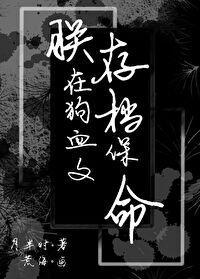 朕在狗血文
存档保命
月半时·著
荒海·画